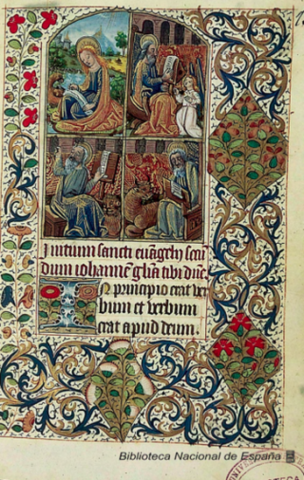 Initium sancti euãgelij scd̃
dum iohannẽ gl̃ia tibi dñe.
IN principio erat ver
bum et verbum
erat apud deum.
Biblioteca Nacional de España